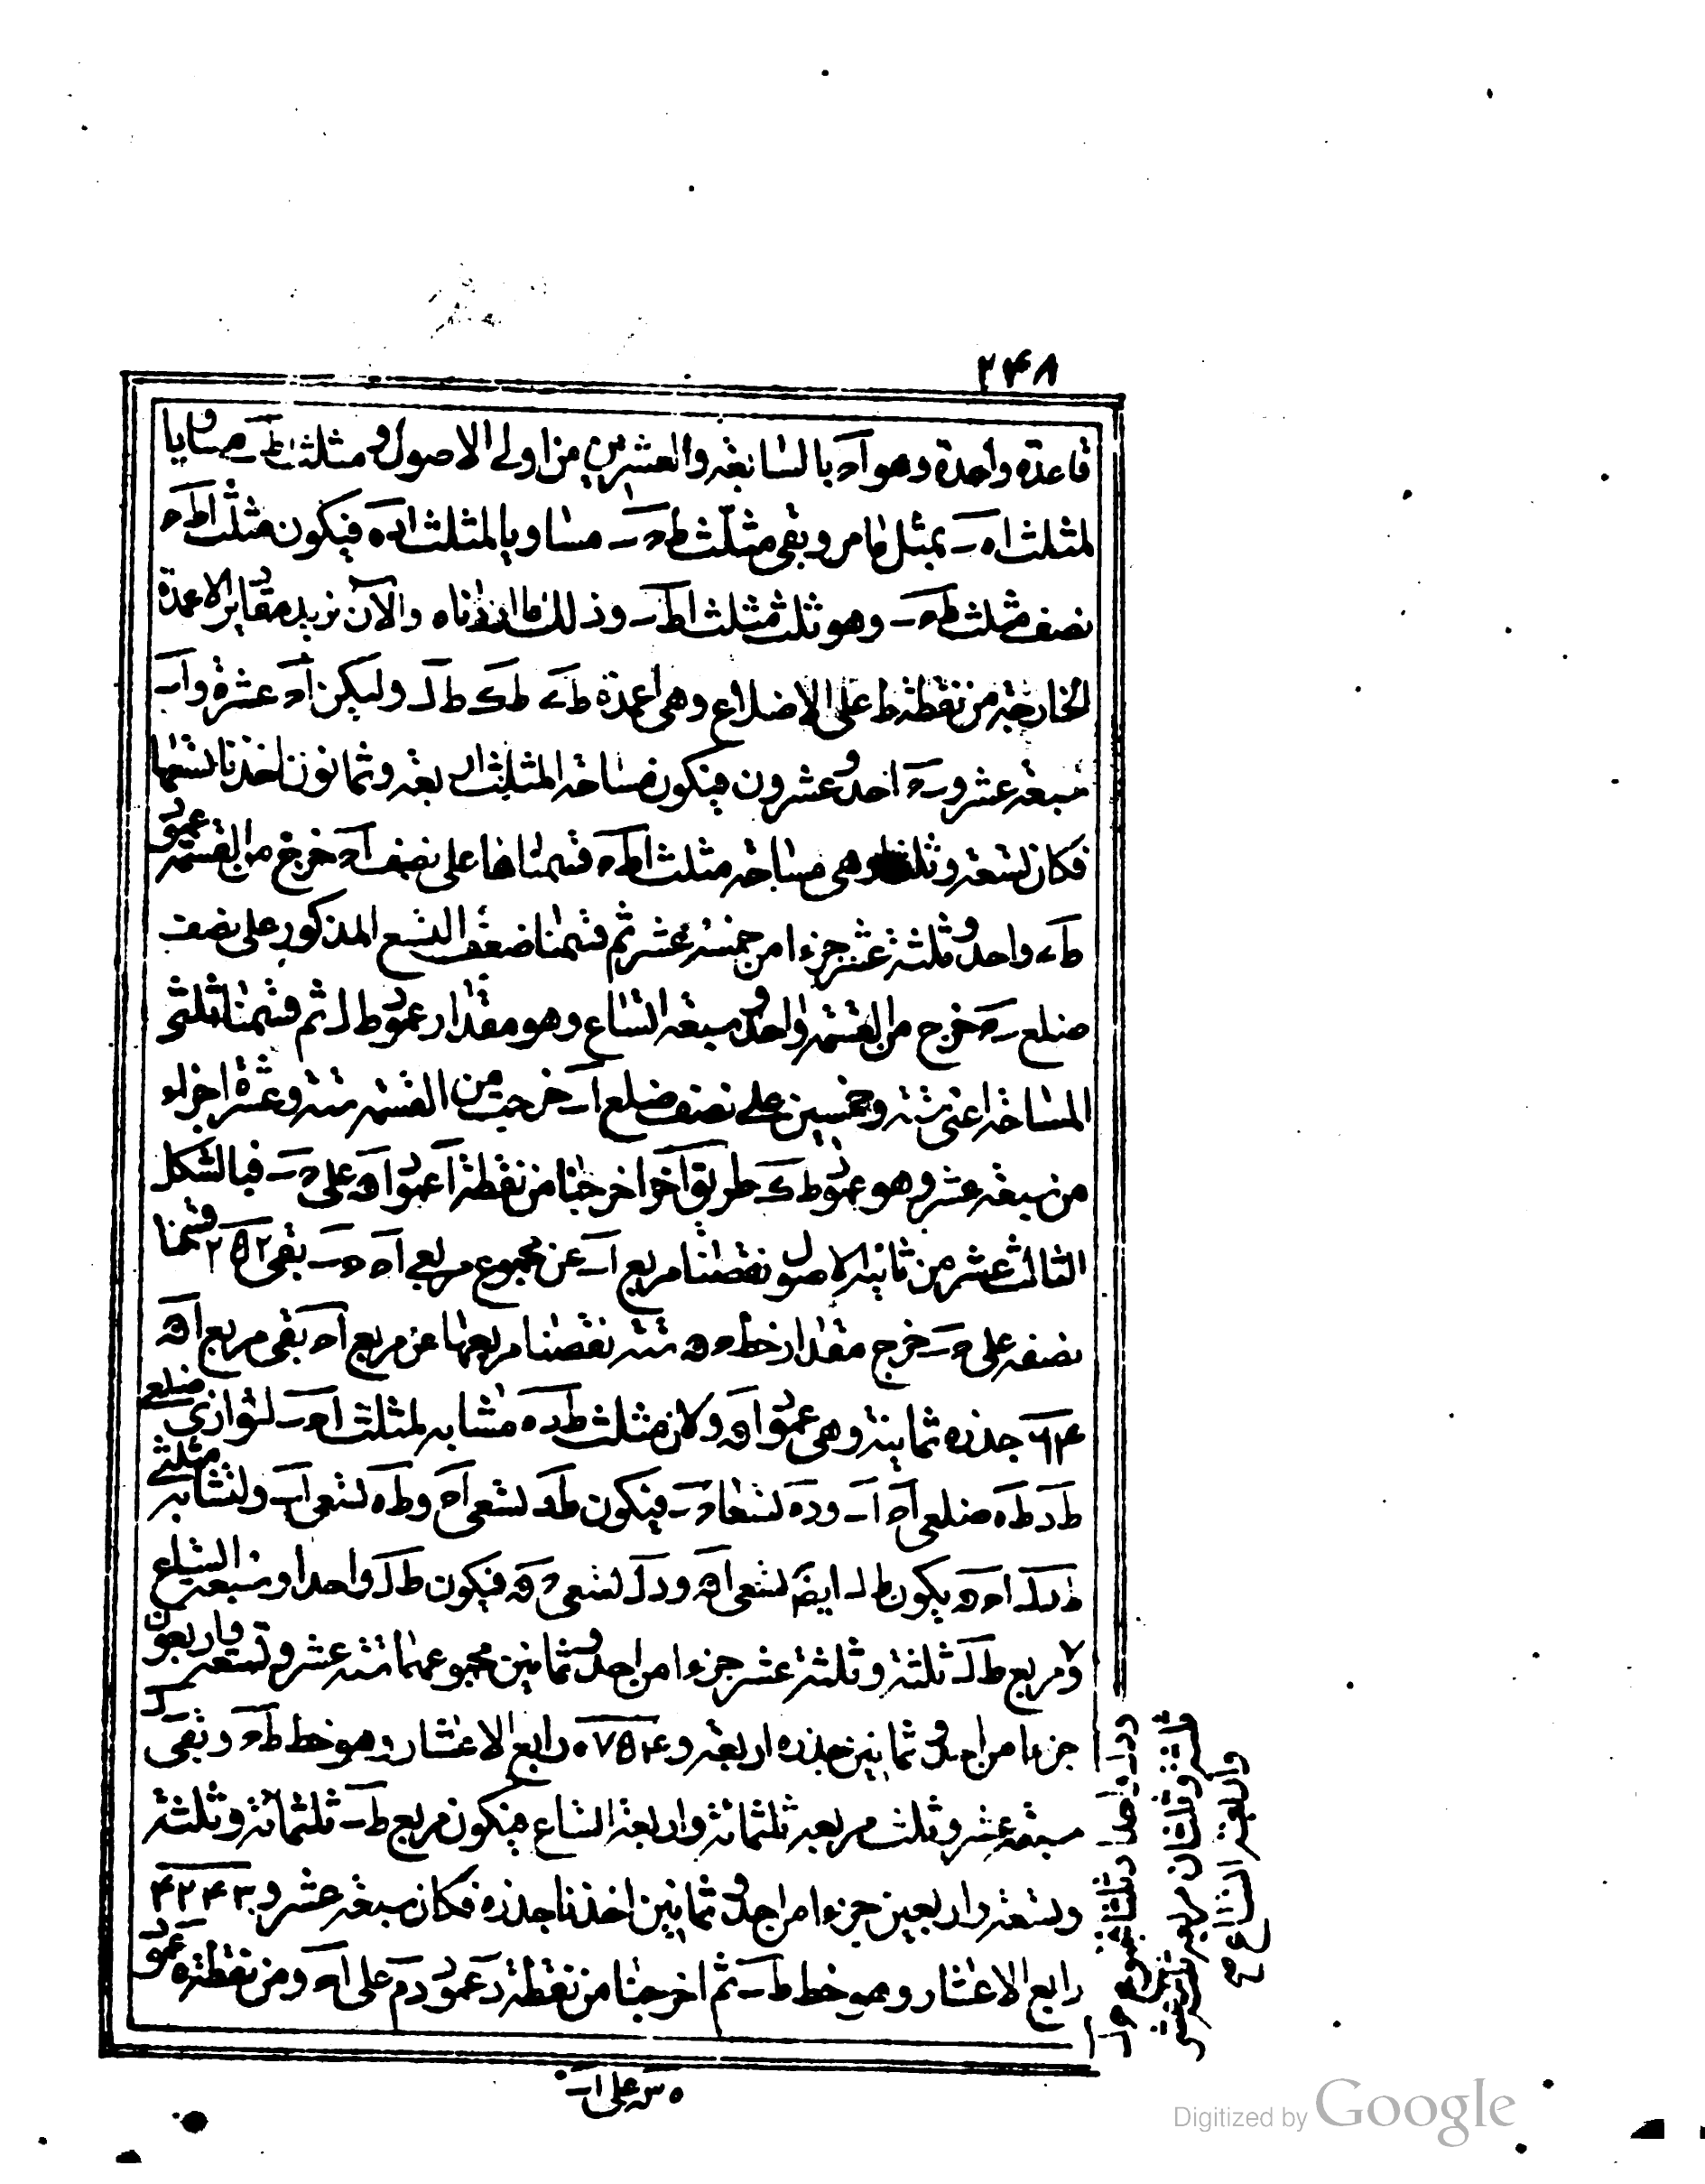 ٢۴٨
قاعدة واحدة وهو اح بالسابعة والعشرين من اولى الاصول و مثلث ط مساويا
لمثلث اه ب بمثل ما مر وبقى مثلث ط ح ب مساويا لمثلث اه فيكون مثلث اط ح
نصف مثلث ط ح ب وهو ثلث مثلث اط ب وذلك ما اردناه والآن نريد مقادير الاعمدة
الخارجة من نقطة ط على الاضلاع وهى اعمدة ط ى ط ك ط ل وليكن اح عشرة و اب
سبعة عشر و ب ح احد وعشرون فيكون مساحة المثلث اربعة وثمانون اخذنا تسعها
فكان تسعة وثلث وهى مساحة مثلث اط ح قسمناها على نصف اح خرج من القسمة عمود
ط ى واحد وثلثة عشر جزءا من خمسة عشر ثم قسمنا ضعف التسع المذكور على نصف
ضلع ب ح خرج من القسمة واحد وسبعة اتساع وهو مقدار عمود ط ل ثم قسمنا ثلثى
المساحة اعنى ستة وخمسين على نصف ضلع اب خرجت من القسمة ستة وعشرة اجزاء
من سبعة عشر وهو عمود ط ك طريق آخر اخرجنا من نقطة ا عمود اق على ح ب فبالشكل
الثالث عشر من ثانية الاصول نقصنا مربع اب عن مجموع مربعى اح ح ب بقى ٢۵٢ قسمنا
نصفه على ح ب خرج مقدار خط ح ق ستة نقصنا مربعها عن مربع اح بقى مربع اق
٦۴ جذره ثمانية وهى عمود اق ولان مثلث ط د ه مشابه لمثلث اح ب لتوازى ضلعى
ط د ط ه ضلعى اح اب و د ه تسعا ح ب فيكون ط د تسعى اح و ط ه تسعى اب ولتشابه مثلثى
ط د ل اح ق يكون ط ل ايضا تسعى اق و د ل تسعى ح ق فيكون ط ل واحدا وسبعة اتساع
و مربع ط ل ثلثة وثلثة عشر جزءا من احد وثمانين مجموعهما ستة عشر وتسعة واربعون
جزءا من احد وثمانين جذره اربعة و ٠٧۵۴ رابع الاعشار وهو خط ط ح وبقى ل ب
سبعة عشر وثلث مربعه ثلثمائة واربعة اتساع فيكون مربع ط ب ثلثمائة وثلثة
وتسعة واربعين جزءا من احد وثمانين اخذنا جذره فكان سبعة عشر و ۴٢۴٣
رابع الاعشار وهو خط ط ب ثم اخرجنا من نقطة د عمود د م على اح ومن نقطة ه عمود
ه س على اب